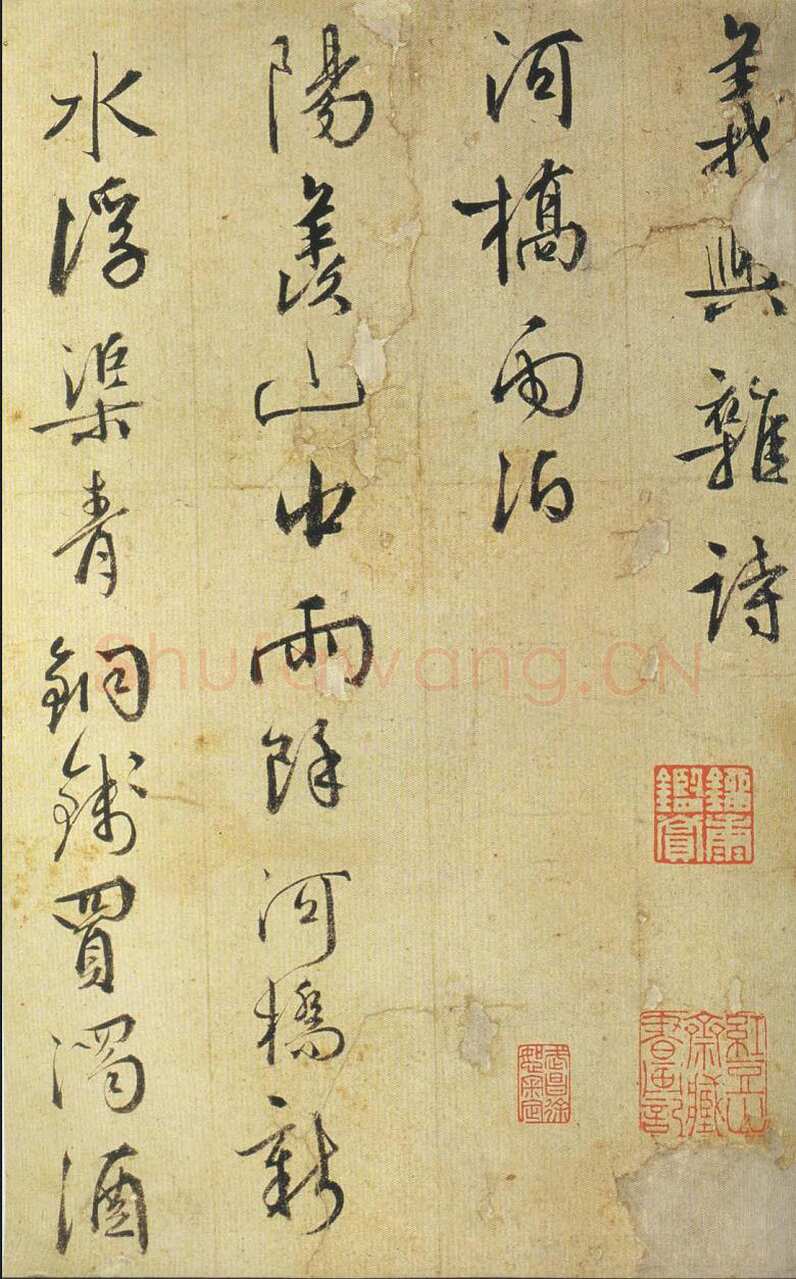 義興雜詩
河橋雨泊
陽羨山中雨餘河橋新
水浮渠青銅錢買濁酒
Shufawang.CN